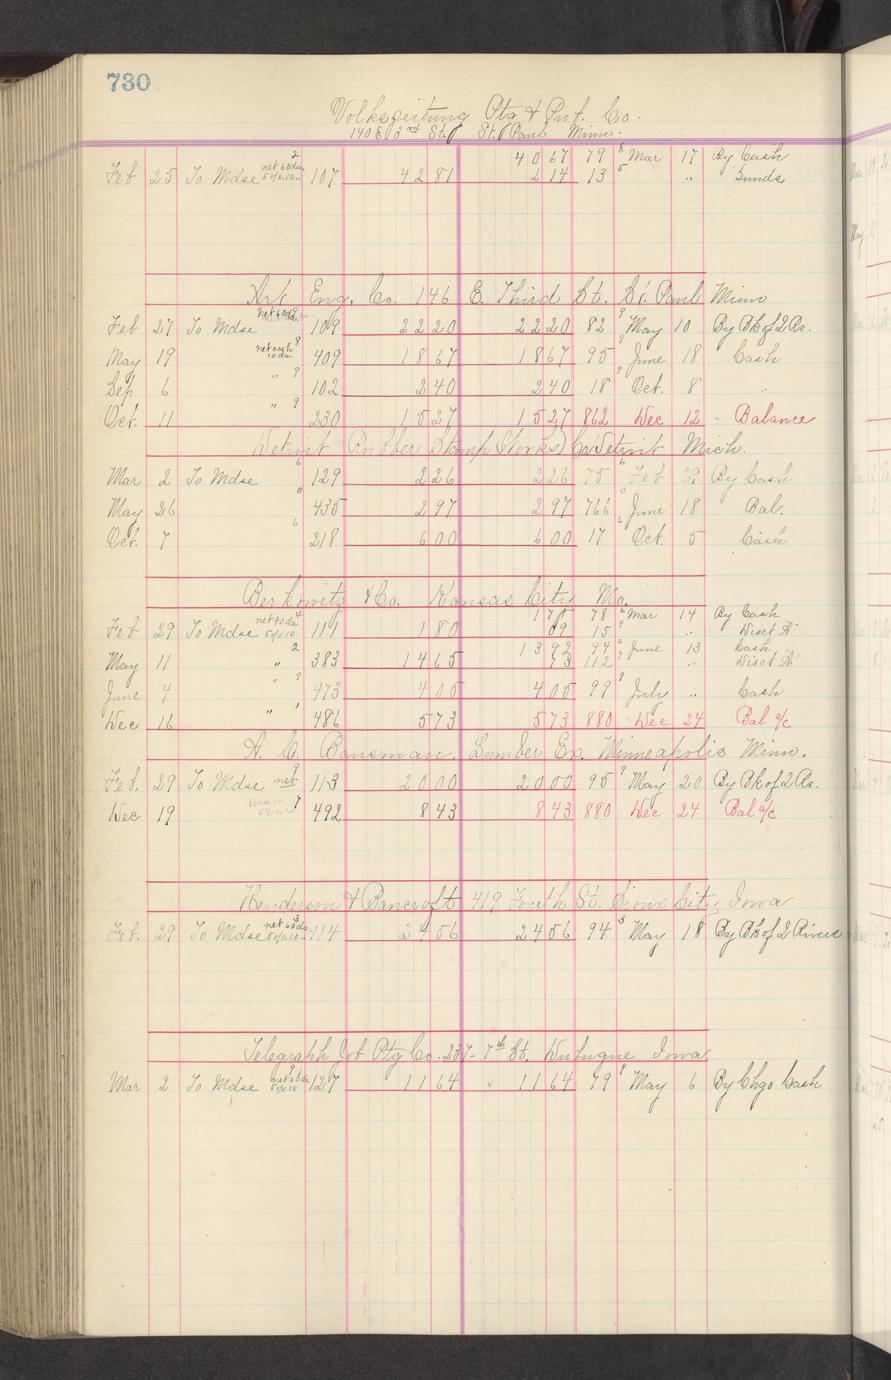 730
Volkszeitung Ptg & Pub. Co.
140 E 3rd St. St. Paul Minn.
4067 79 8 Mar 17 By Cash
Feb 25 To Mdse net 60 da 2 5% 10 107 4281 214 13 5 " Sunds
Art Eng. Co. 146 E. Third St. St. Paul Minn
Feb 27 To Mdse net 60 da 9 109 2220 2220 82 9 May 10 By Bk of 2 Rs.
May 19 net cash 10 da. 8 409 1867 1867 95 8 June 18 Cash
Sep 6 " 9 102 240 240 18 9 Oct. 8 "
Oct. 11 " 9 230 1527 1527 862 Dec 12 Balance
Detroit Rubber Stamp Works Co Detroit Mich.
Mar 2 To Mdse 6 129 226 226 75 6 Feb 29 By Cash
May 26 0 435 297 297 766 0 June 18 Bal.
Oct. 7 6 218 600 600 17 6 Oct. 5 Cash
Berkowitz & Co. Kansas City Mo.
171 78 6 Mar 14 By Cash
Feb 29 To Mdse net 90 da 4 5% 10 111 180 09 15 9 " Disct A
1392 94 6 June 13 Cash
May 11 " 2 383 1465 73 112 7 " Disct A
June 4 " 9 473 405 405 99 8 July " Cash
Dec 16 " 1 486 573 573 880 Dec 24 Bal a/c
A. C. Bausman, Lumber Ex. Minneapolis Minn.
Feb. 29 To Mdse net 9 113 2000 2000 95 9 May 20 By Bk of 2 Rs.
Dec 19 7 492 843 843 880 Dec 24 Bal a/c
Henderson & Bancroft 419 Fourth St. Sioux City, Iowa
Feb. 29 To Mdse net 60 da 3 5% 10 114 2456 2456 94 3 May 18 By Bk of 2 Rivers
Telegraph Job Ptg Co. 237 - 7th St. Dubuque Iowa
Mar 2 To Mdse net 60 da 9 5% 10 127 1164 1164 79 9 May 6 By Chgo Cash